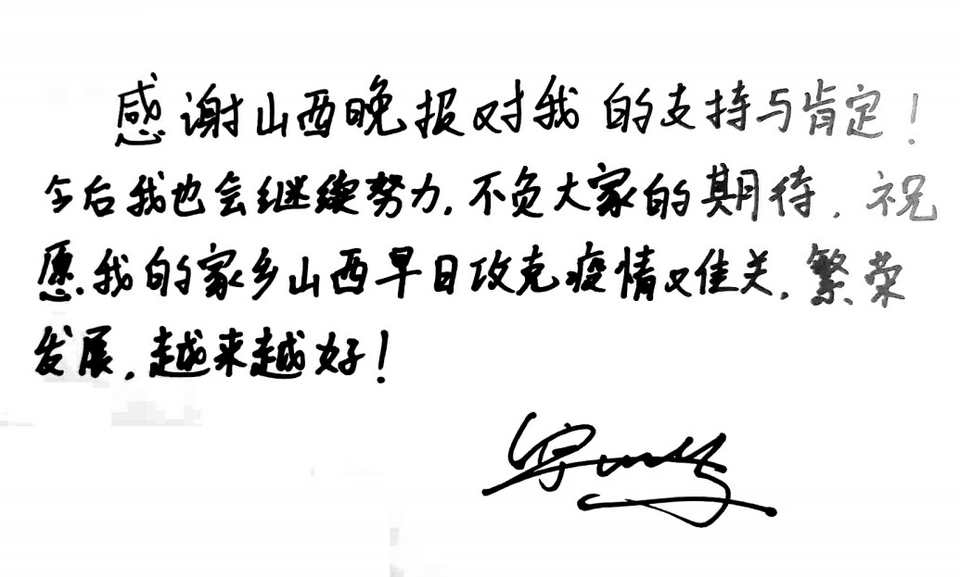 感谢山西晚报对我的支持与肯定！
今后我也会继续努力，不负大家的期待，祝
愿我的家乡山西早日攻克疫情难关，繁荣
发展，越来越好！